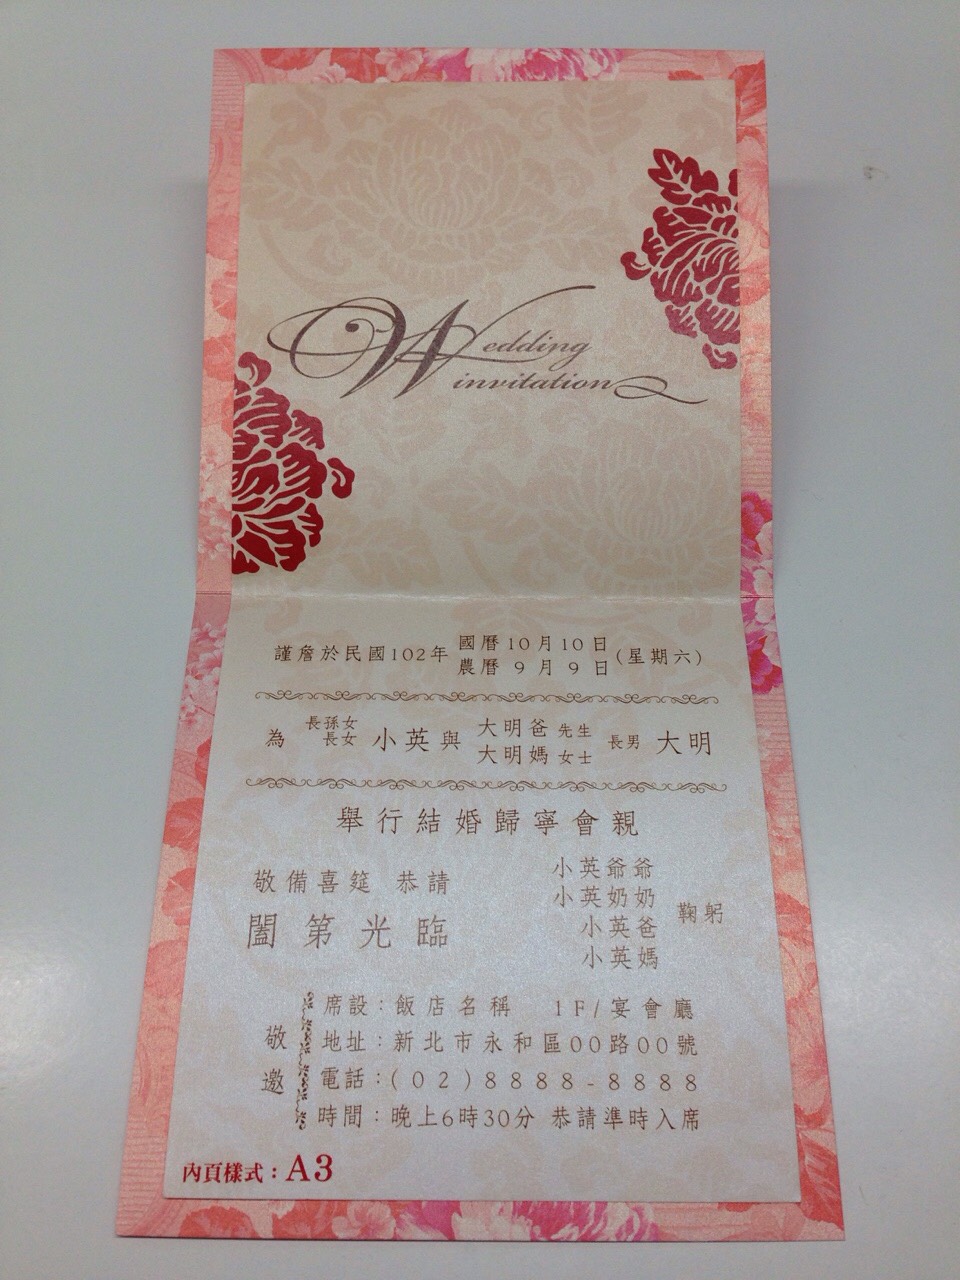 Wedding
invitation
謹詹於民國102年 國曆10月10日 (星期六)
農曆 9月 9日
為 長孫女 小英與 大明爸 先生 長男 大明
長女 大明媽 女士
舉行結婚歸寧會親
敬備喜筵 恭請
闔第光臨
小英爺爺
小英奶奶
小英爸
小英媽
鞠躬
敬邀
席設：飯店名稱 1F/宴會廳
地址：新北市永和區00路00號
電話：(02)8888-8888
時間：晚上6時30分 恭請準時入席
內頁樣式：A3